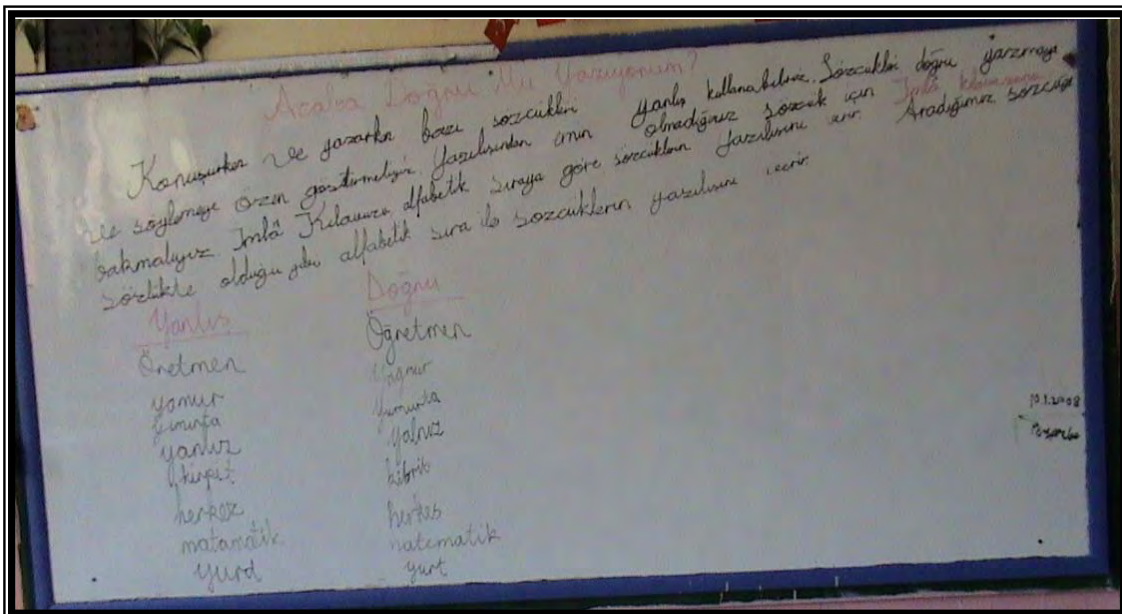 Acaba Doğru Mu Yazıyorum?
Konuşurken ve yazarken bazı sözcükleri yanlış kullanabiliriz. Sözcükleri doğru yazmaya
ve söylemeye özen göstermeliyiz. Yazılışından emin olmadığımız sözcük için İmlâ kılavuzuna
bakmalıyız. İmlâ Kılavuzu alfabetik sıraya göre sözcüklerin yazılışını verir. Aradığımız sözcüğü
sözlükte olduğu gibi alfabetik sıra ile sözcüklerin yazılışını verir.
Yanlış Doğru
Öretmen Öğretmen
yamur Yağmur
yumurta
yanlız yalnız
kibrit
herkez herkes
matamatik matematik
yurd yurt
10.1.2008
Perşembe